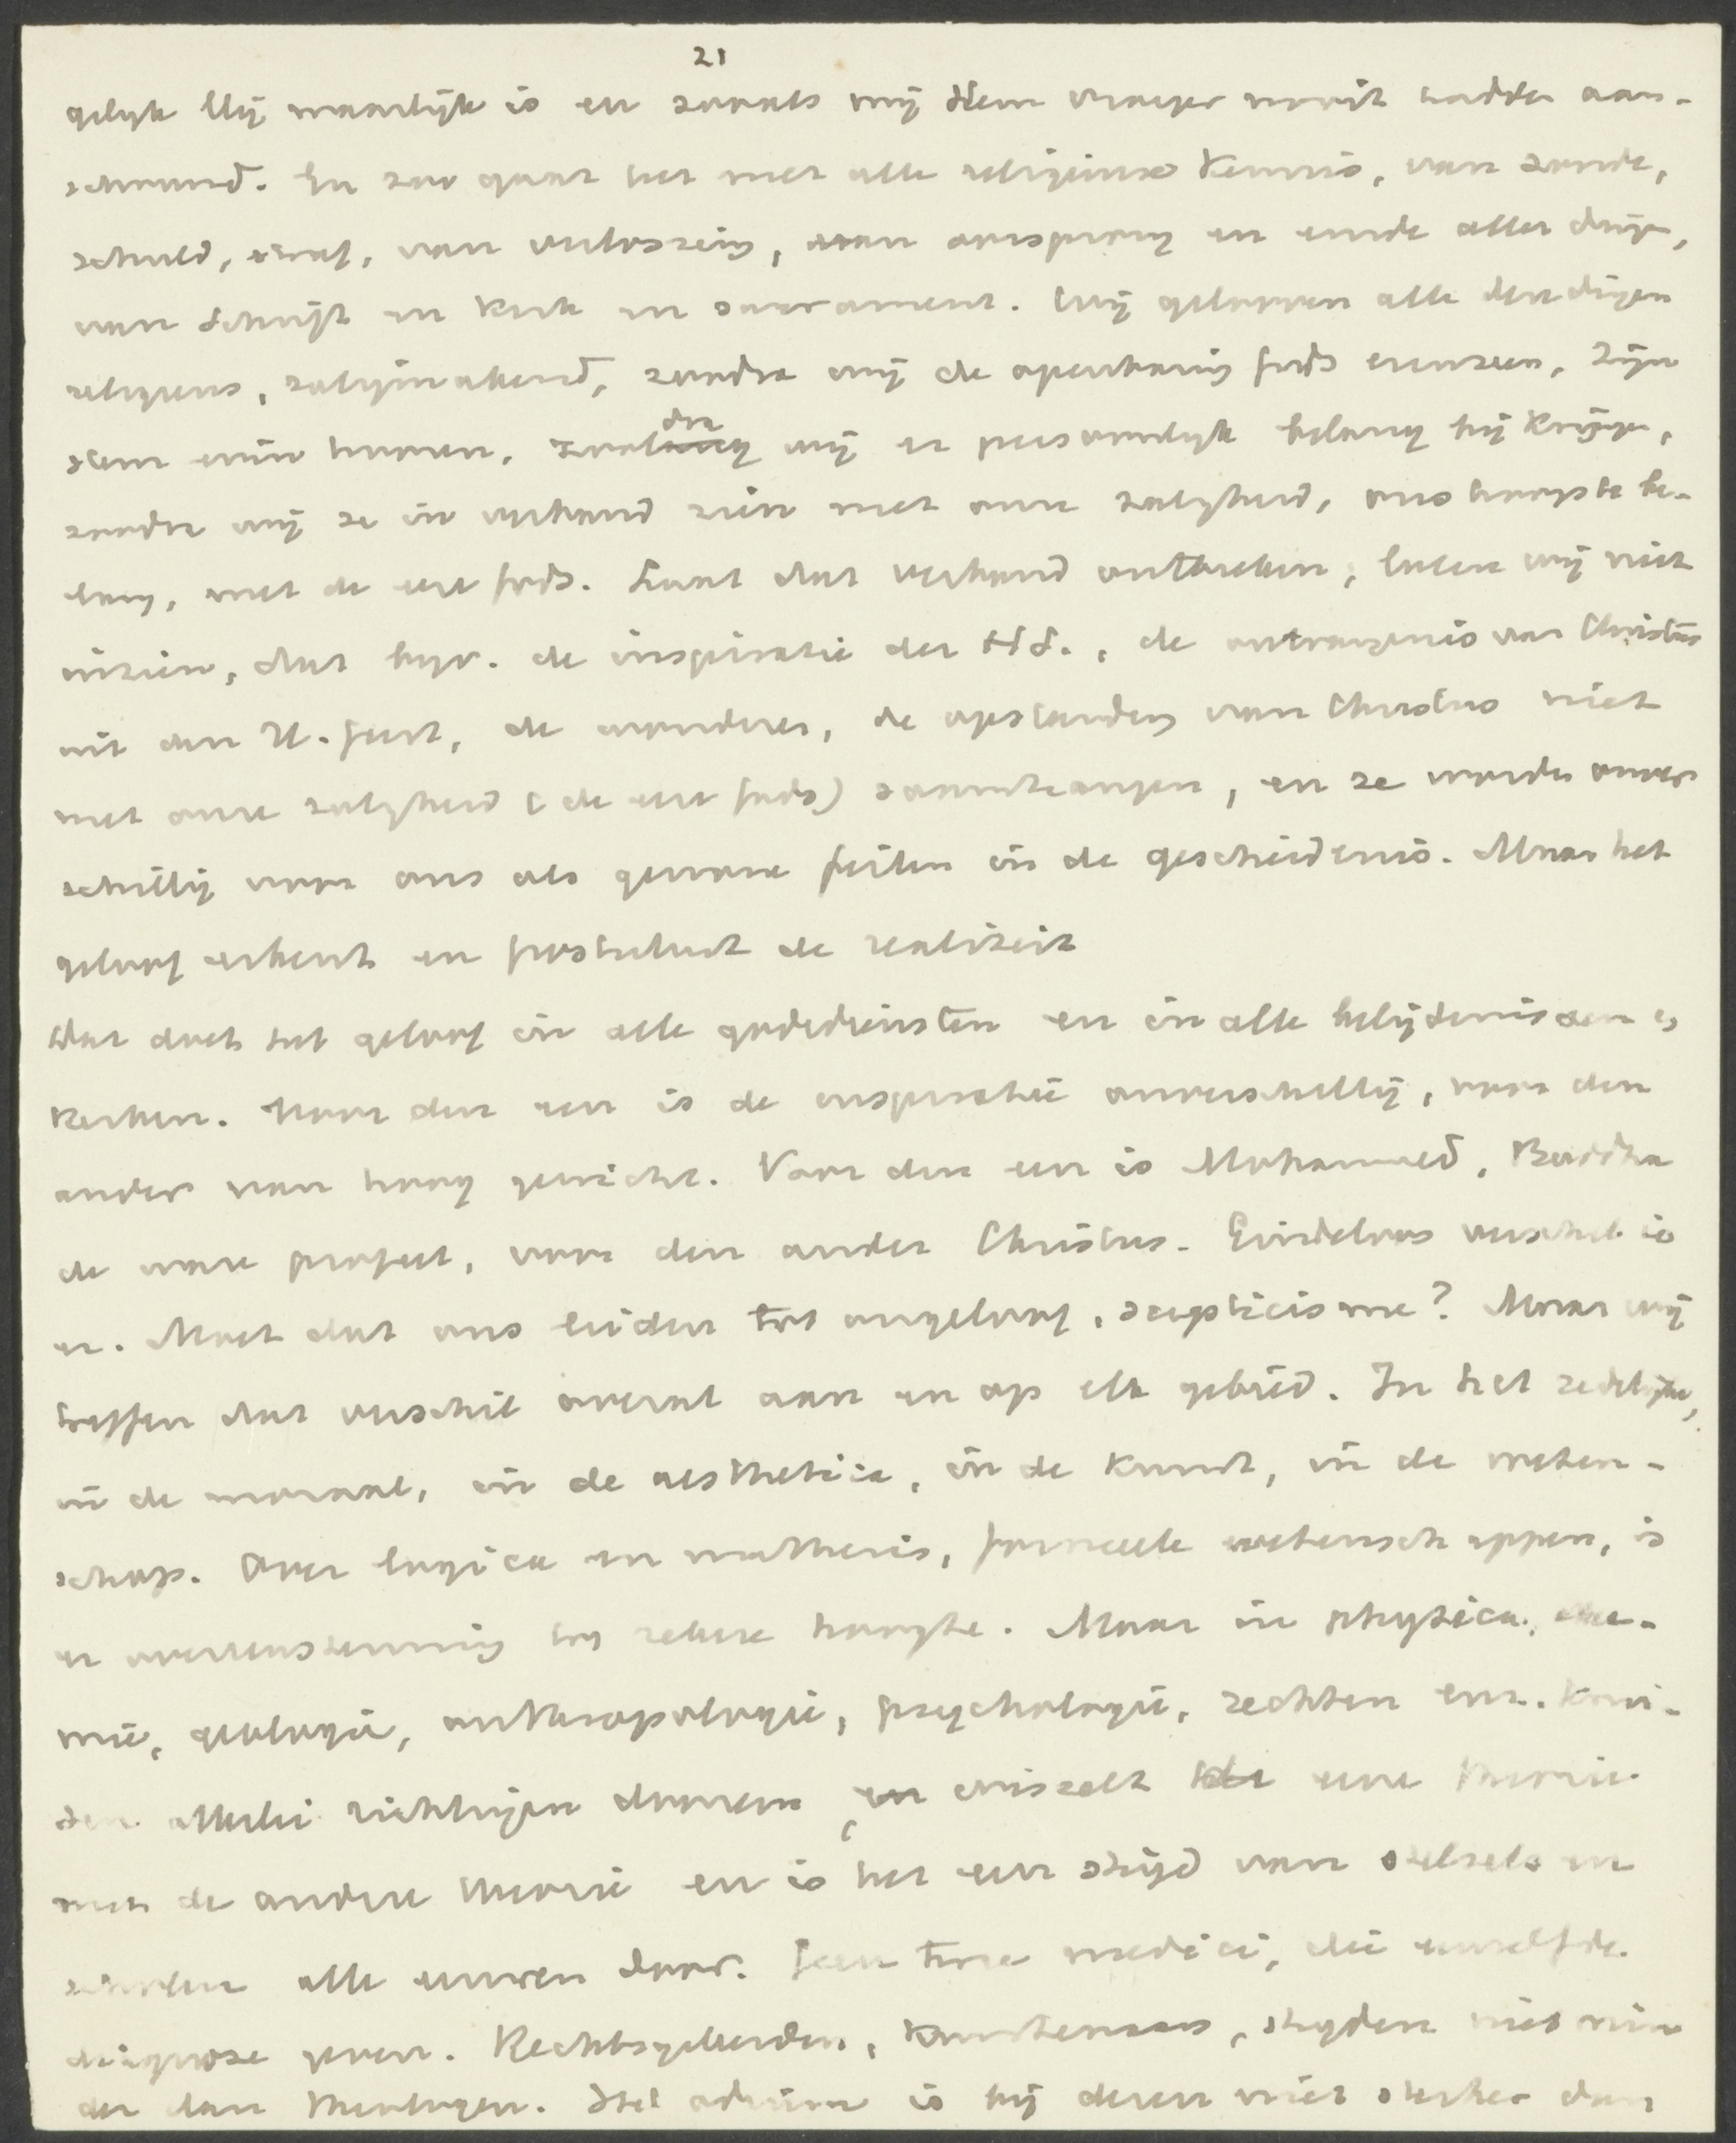 21
gelijk Hij waarlijk is en zooals wij Hem vroeger nooit hadden aan-
schouwd. En zoo gaat het met alle religieuse kennis, van zonde,
schuld, straf, van verlossing, van oorsprong en einde aller dingen,
van Schrift en kerk en sacrament. Wij gelooven alle deze dingen
religieus, zaligmakend, zoodra wij de openbaring Gods erin zien, Zijn
stem erin hooren, zoodra wij er persoonlijk belang bij krijgen,
zoodra wij ze in verband zien met onze zaligheid, ons hoogste be-
lang, met de eere Gods. Laat dat verband ontbreken, laten wij niet
inzien, dat bijv. de inspiratie der H.S., de ontvangenis van Christus
uit den H. Geest, de wonderen, de opstanding van Christus niet
met onze zaligheid (de eere Gods) samenhangen, en ze worden onver-
schillig voor ons als gewone feiten in de geschiedenis. Maar het
geloof erkent en postuleert de realiteit
Dat doet het geloof in alle godsdiensten en in alle belijdenissen en
kerken. Voor den een is de inspiratie onverschillig, voor den
ander van hoog gewicht. Voor den een is Mohammed, Buddha
de ware profeet, voor den ander Christus. Eindeloos verschil is
er. Moet dat ons leiden tot ongeloof, scepticisme? Maar wij
treffen dat verschil overal aan en op elk gebied. In het zedelijke,
in de moraal, in de aesthetica, in de kunst, in de weten-
schap. Over logica en mathesis, formeele wetenschappen, is
er overeenstemming tot zekere hoogte. Maar in physica, che-
mie, geologie, anthropologie, psychologie, rechten enz. komen
den allerlei richtingen daarvan en wisselt eene theorie
met de andere theorie en is het een strijd van stelsels en
scholen alle eeuwen door. Geen twee medici, die eenzelfde
diagnose geven. Rechtsgeleerden, kunstenaars, strijden niet min-
der dan theologen. Het odium is bij dezen niet sterker dan